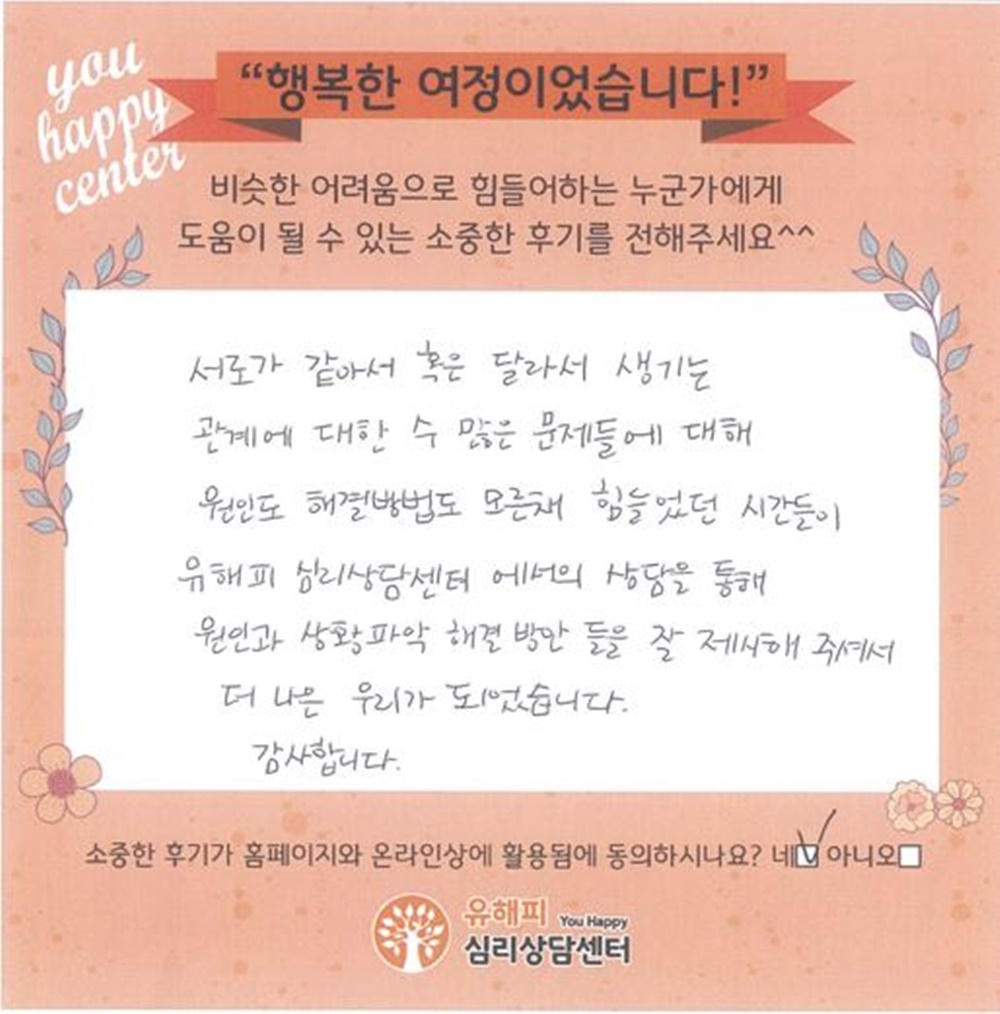 you
happy
center
“행복한 여정이었습니다!”
비슷한 어려움으로 힘들어하는 누군가에게
도움이 될 수 있는 소중한 후기를 전해주세요^^
서로가 같아서 혹은 달라서 생기는
관계에 대한 수 많은 문제들에 대해
원인도 해결방법도 모른채 힘들었던 시간들이
유해피 심리상담센터 에서의 상담을 통해
원인과 상황파악 해결 방안 들을 잘 제시해 주셔서
더 나은 우리가 되었습니다.
감사합니다.
소중한 후기가 홈페이지와 온라인상에 활용됨에 동의하시나요? 네☑ 아니오☐
유해피 You Happy
심리상담센터